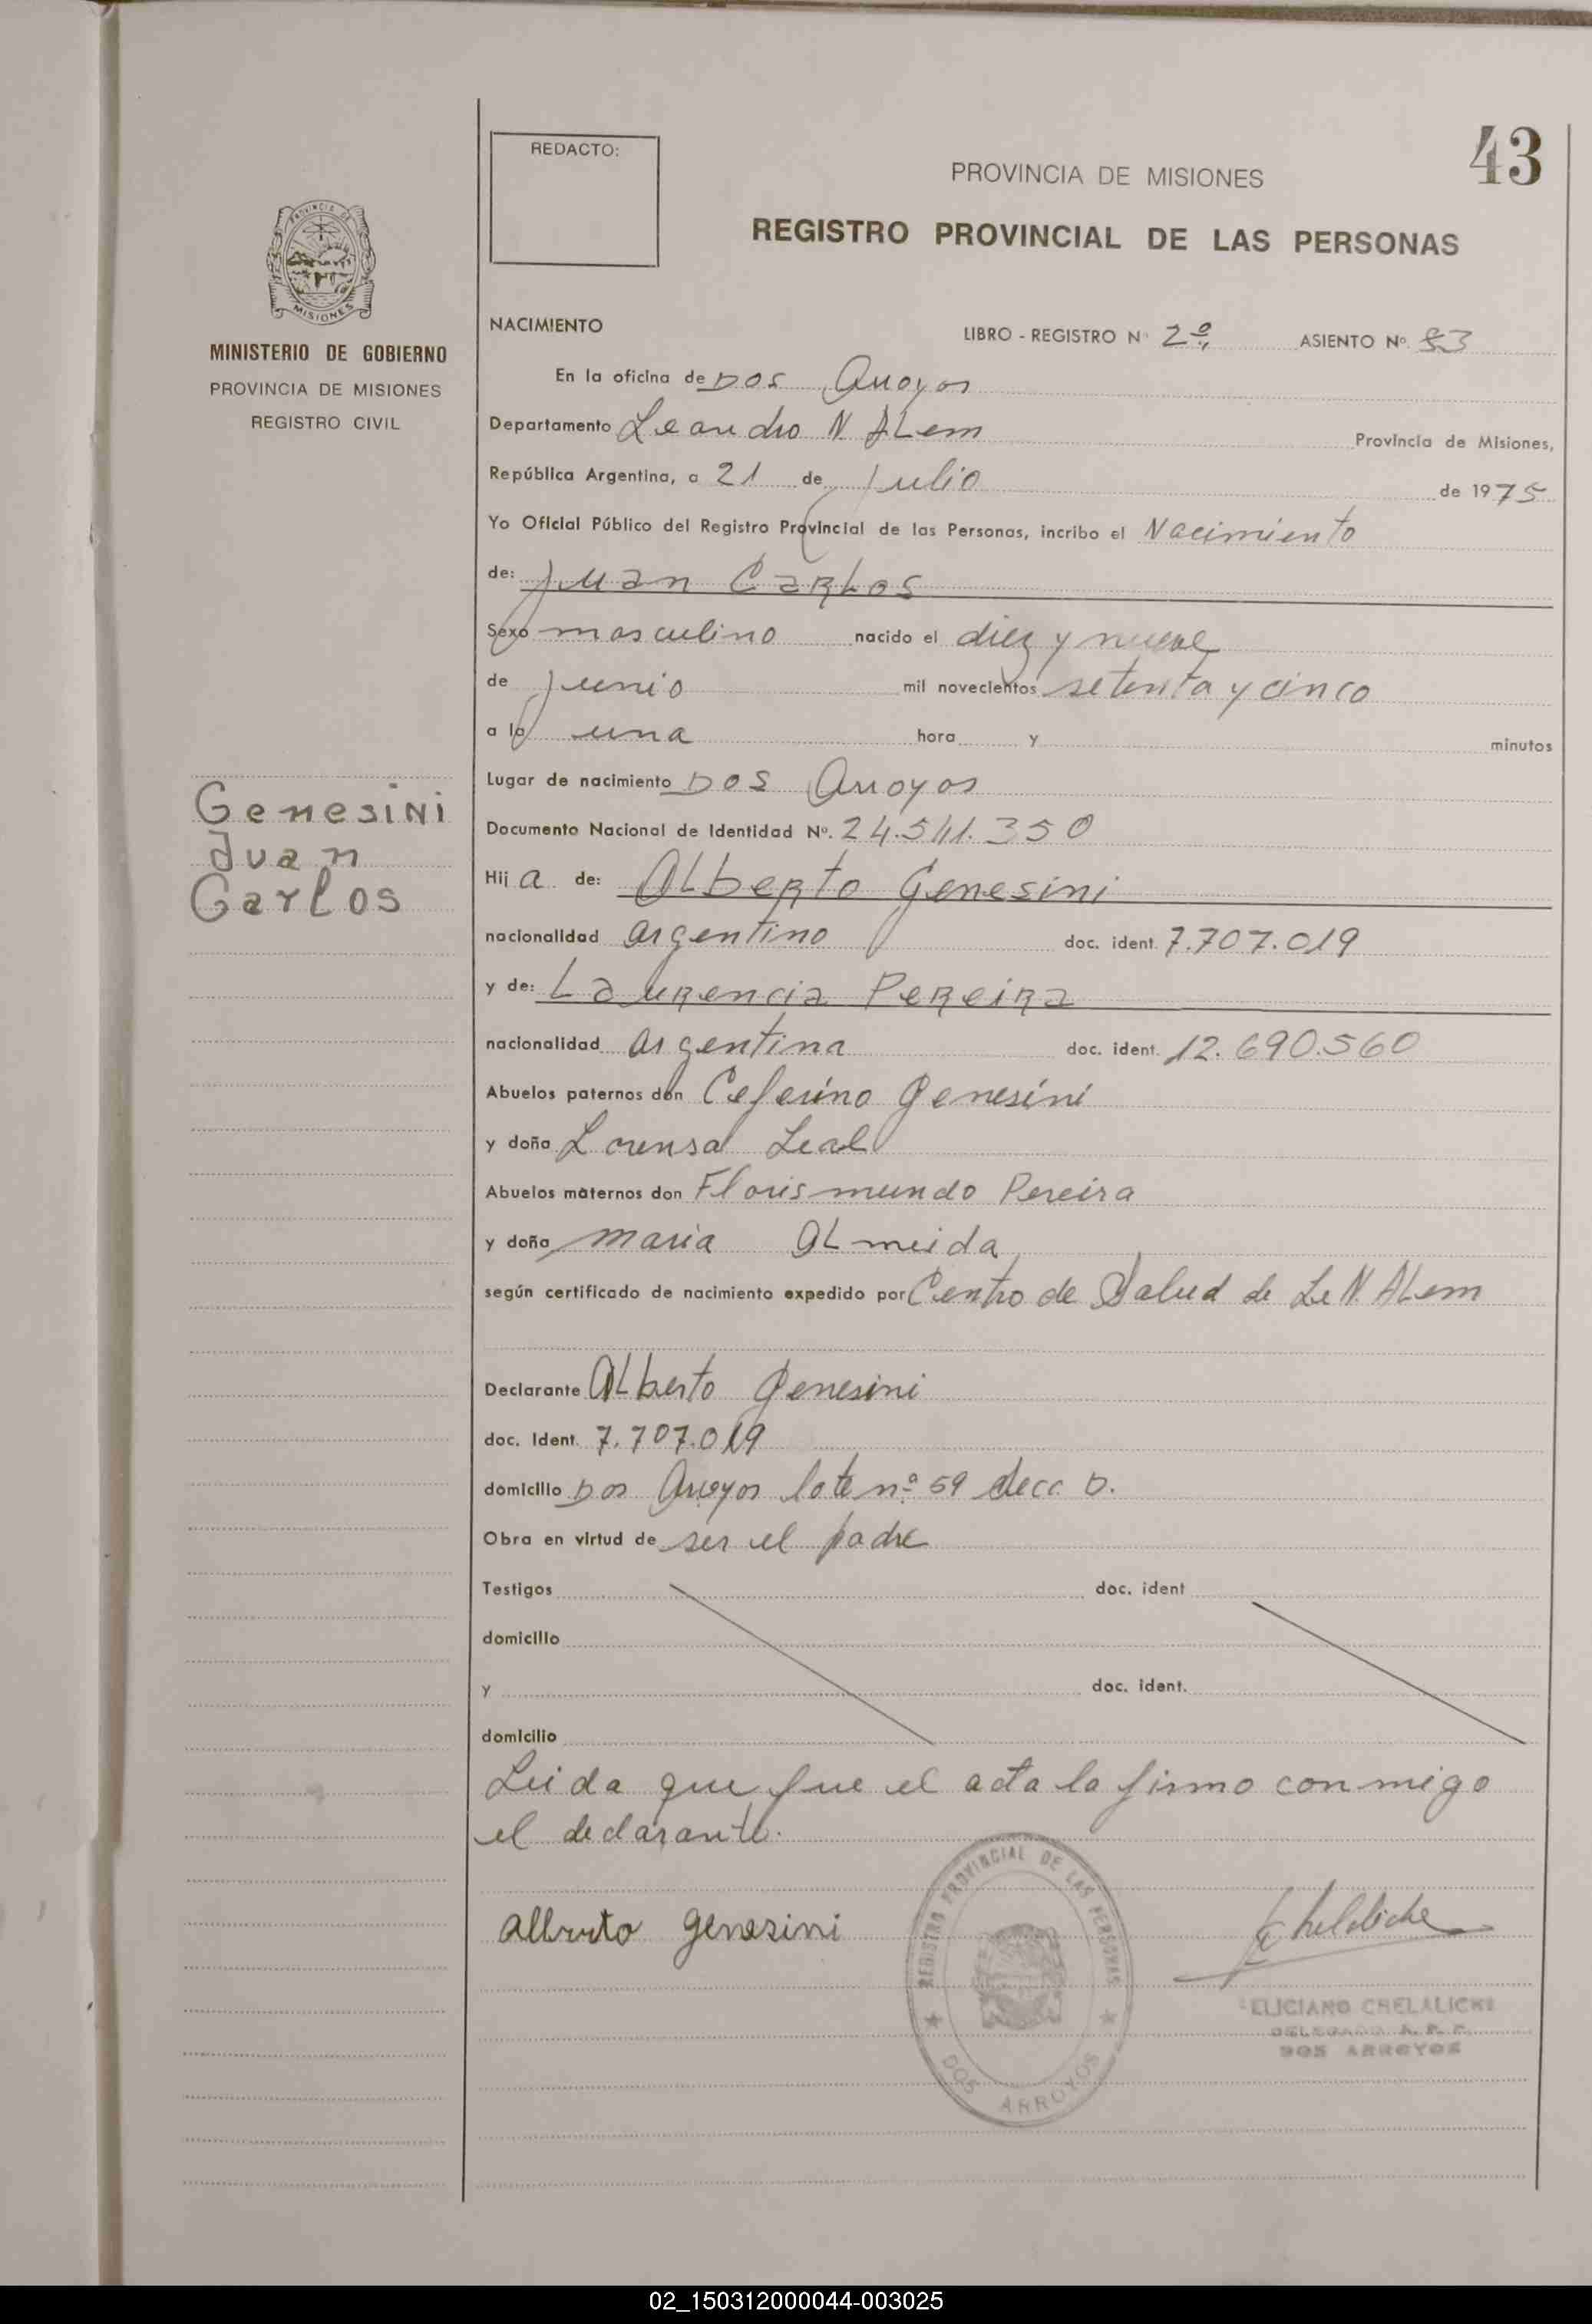 REDACTO:
43
PROVINCIA DE MISIONES
REGISTRO PROVINCIAL DE LAS PERSONAS
PROVINCIA DE
MISIONES
MINISTERIO DE GOBIERNO
PROVINCIA DE MISIONES
REGISTRO CIVIL
NACIMIENTO
LIBRO - REGISTRO Nº 2º ASIENTO Nº 83
En la oficina de Dos Arroyos
Departamento Leandro N. ALem Provincia de Misiones,
República Argentina, a 21 de Julio de 1975
Yo Oficial Público del Registro Provincial de las Personas, incribo el Nacimiento
de: Juan Carlos
Sexo masculino nacido el diez y nueve
de Junio mil novecientos setenta y cinco
a la una hora y minutos
Lugar de nacimiento Dos Arroyos
Genesini
Juan
Carlos
Documento Nacional de Identidad Nº. 24.541.350
Hij a de: ALberto Genesini
nacionalidad argentino doc. ident. 7.707.019
y de: Laurencia Pereira
nacionalidad argentina doc. ident. 12.690.560
Abuelos paternos don Ceferino Genesini
y doña Lorensa Leal
Abuelos maternos don Florismundo Pereira
y doña maria ALmeida
según certificado de nacimiento expedido por Centro de Salud de L. N. ALem
Declarante ALberto Genesini
doc. Ident. 7.707.019
domicilio Dos Arroyos lote nº 59 Secc D.
Obra en virtud de ser el padre
Testigos doc. ident
domicilio
y doc. ident.
domicilio
Leida que fue el acta la firmo conmigo
el declarante.
alberto genesini
REGISTRO PROVINCIAL DE LAS PERSONAS
DOS ARROYOS
ELICIANO CHELALICHE
DELEGADO R. P. P.
DOS ARROYOS
02_150312000044-003025